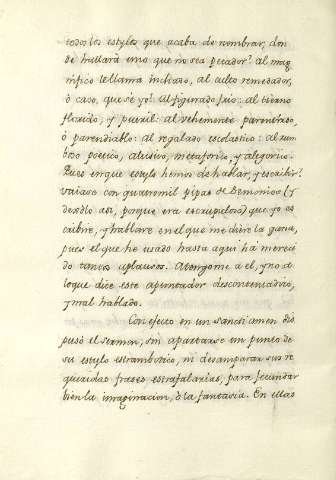 todos los estylos que acaba de nombrar, don
de hallará uno que no sea pecador? al mag
nifico le llama inchado, al culto remedador,
ò caso, que sè yo? Al figurado frio: al tierno
florido, y pueril: al vehemente
ò parendiablo: al regalado escolastico: al
poetico, alusivo, metaforico, y alegorico.
Pues en que estylo hemos de hablar, y escribir?
vaiase con quatromil pipas de Demonios (y
dexólo asi, porque era escrupuloso) que yo es
cribire, y hablare en el que me diere la gana,
pues el que he usado hasta aqui ha mereci
do tantos aplausos. Atengome a el, y no a
loque dice este apuntador descontentadizo,
y mal hablado.
Con efecto en un santiamen dis
puso el sermon, sin apartarse un punto de
su estylo estrambotico, ni desamparar sus re
queridas frases estrafalarias, para fecundar
bien la imaginacion, ò la fantasia. En ellas